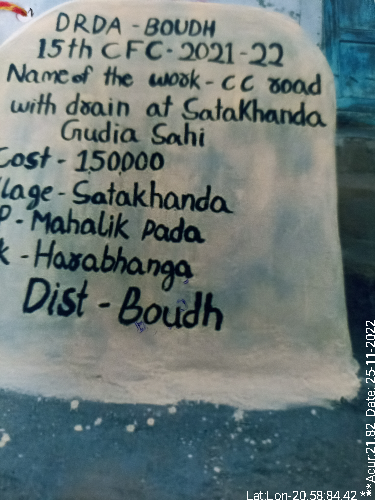 DRDA - BOUDH
15th CFC - 2021-22
Name of the work - CC road
with drain at SataKhanda
Gudia Sahi
Cost - 150000
llage - Satakhanda
P - Mahalik pada
k - Harabhanga
Dist - Boudh
Lat:Lon-20.58:84.42 ***Acur:21.82 Date: 25-11-2022